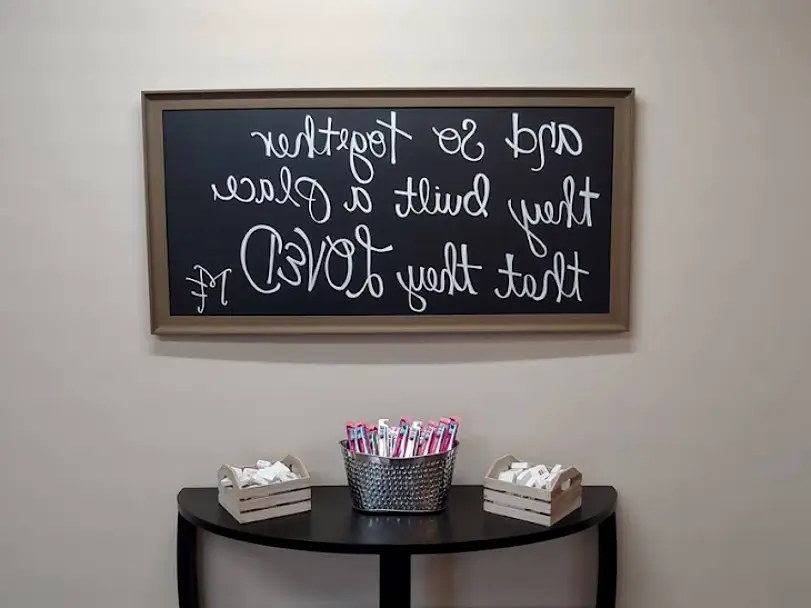 and so together
they built a place
that they LOVED